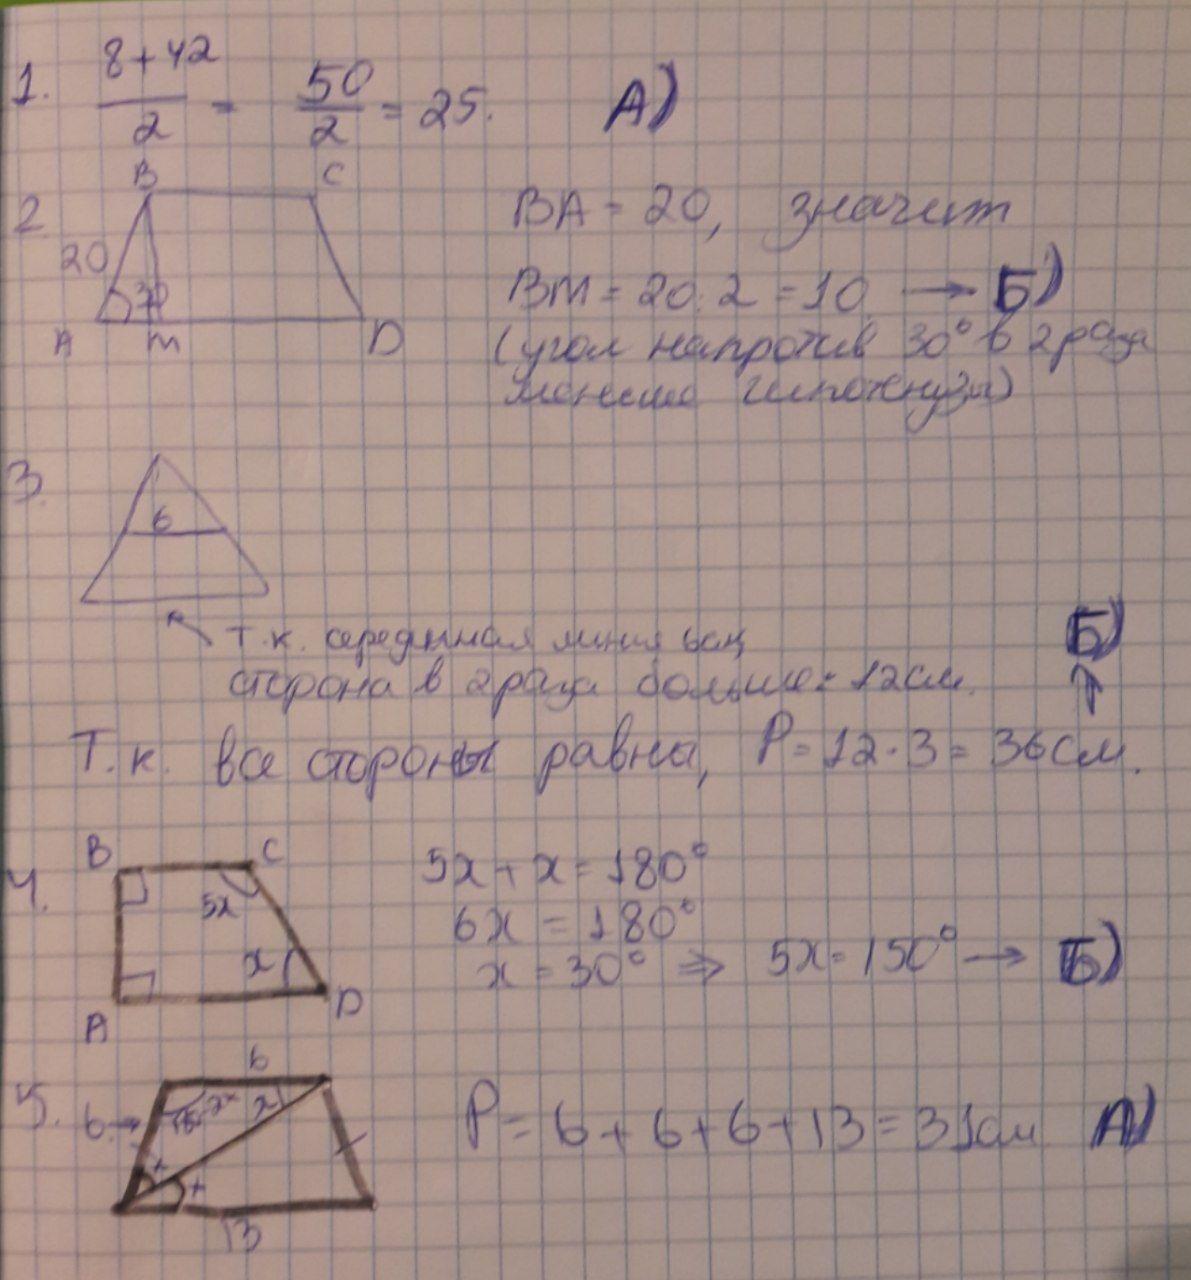 1. 8+42/2 = 50/2 = 25. А)
2 B C
20 30
A M D
BA = 20, значит
BM = 20:2 = 10 → Б)
(угол напротив 30° в 2 раза
меньше гипотенузы)
3. 6
Б)
т.к. серединная линия
сторона в 2 раза больше = 12 см.
Т.к. все стороны равны, P = 12·3 = 36 см.
4. B C
5x
x
A D
5x + x = 180°
6x = 180°
x = 30° ⇒ 5x = 150° → Б)
5. 6
6 → x
x x
13
P = 6 + 6 + 6 + 13 = 31 см А)